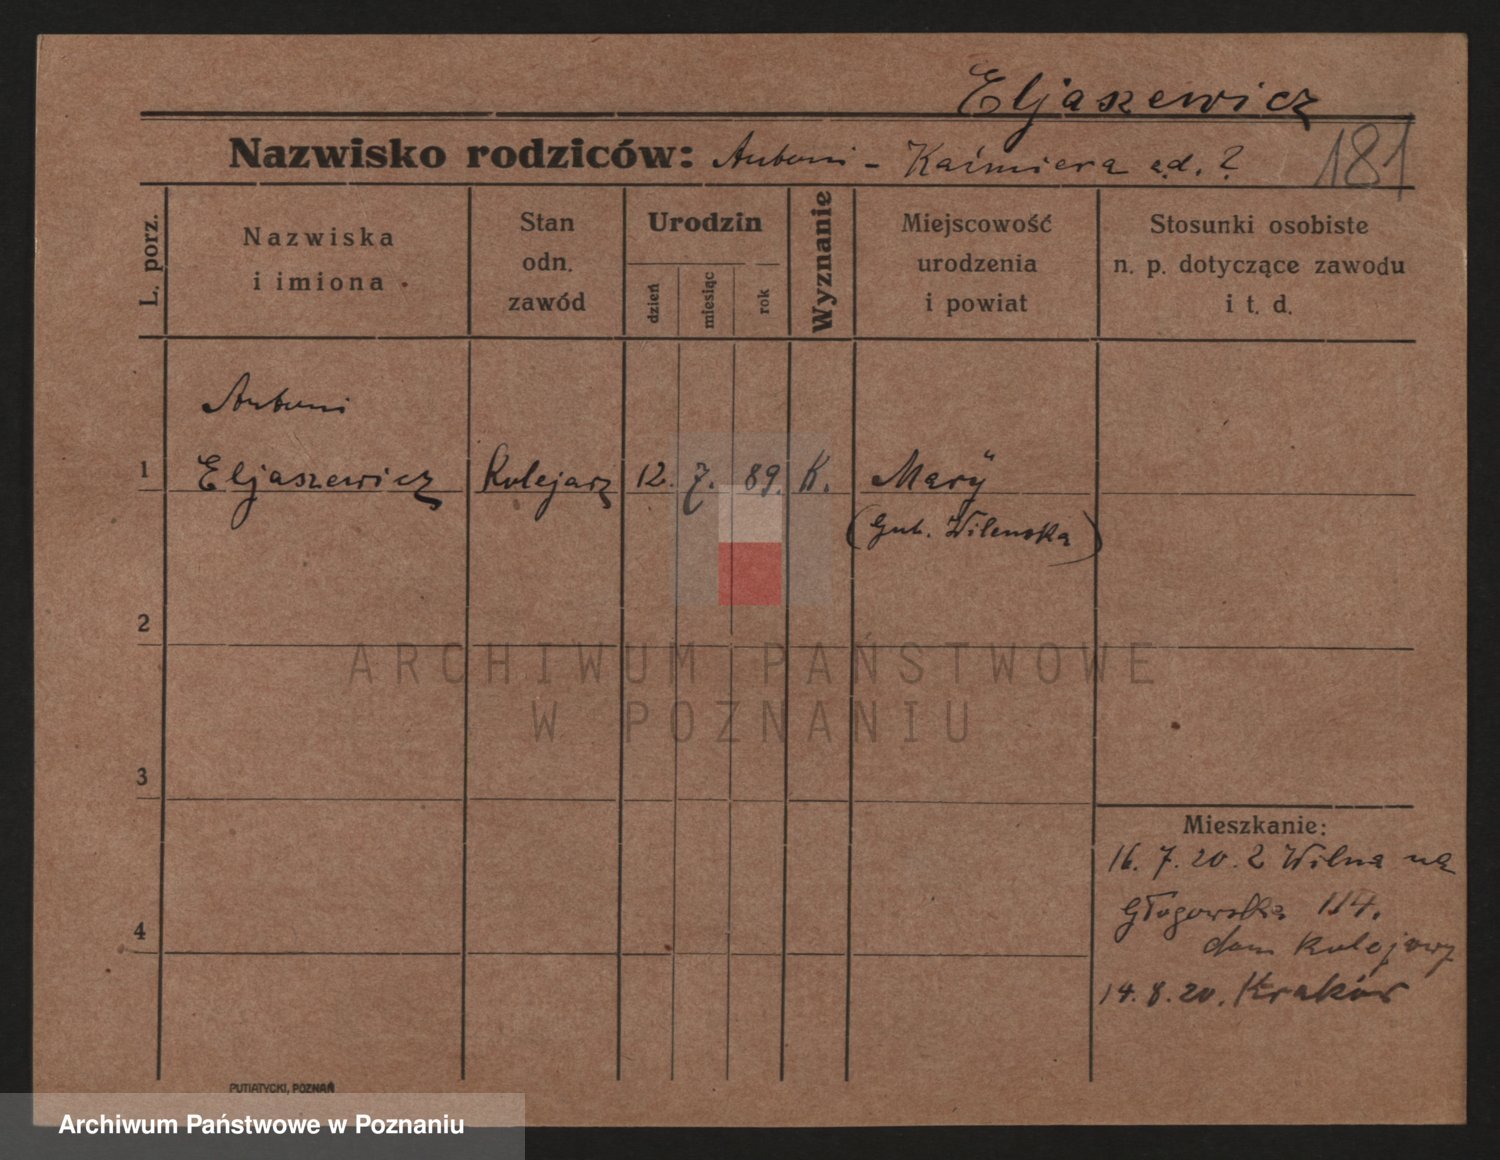 Eljaszewicz
Nazwisko rodziców: Antoni - Kaźmiera a.d. ?
181
L. porz.
Nazwiska
i imiona
Stan
odn.
zawód
Urodzin
dzień
miesiąc
rok
Wyznanie
Miejscowość
urodzenia
i powiat
Stosunki osobiste
n. p. dotyczące zawodu
i t. d.
Antoni
1 Eljaszewicz Kolejarz 12. 7. 89. K. Mary
(Gub. Wilenska)
2
ARCHIWUM PAŃSTWOWE
W POZNANIU
3
Mieszkanie:
16. 7. 20. z Wilna na
Głogowska 114.
4
dom kolejowy
14. 8. 20. Kraków
PUTIATYCKI, POZNAŃ
Archiwum Państwowe w Poznaniu